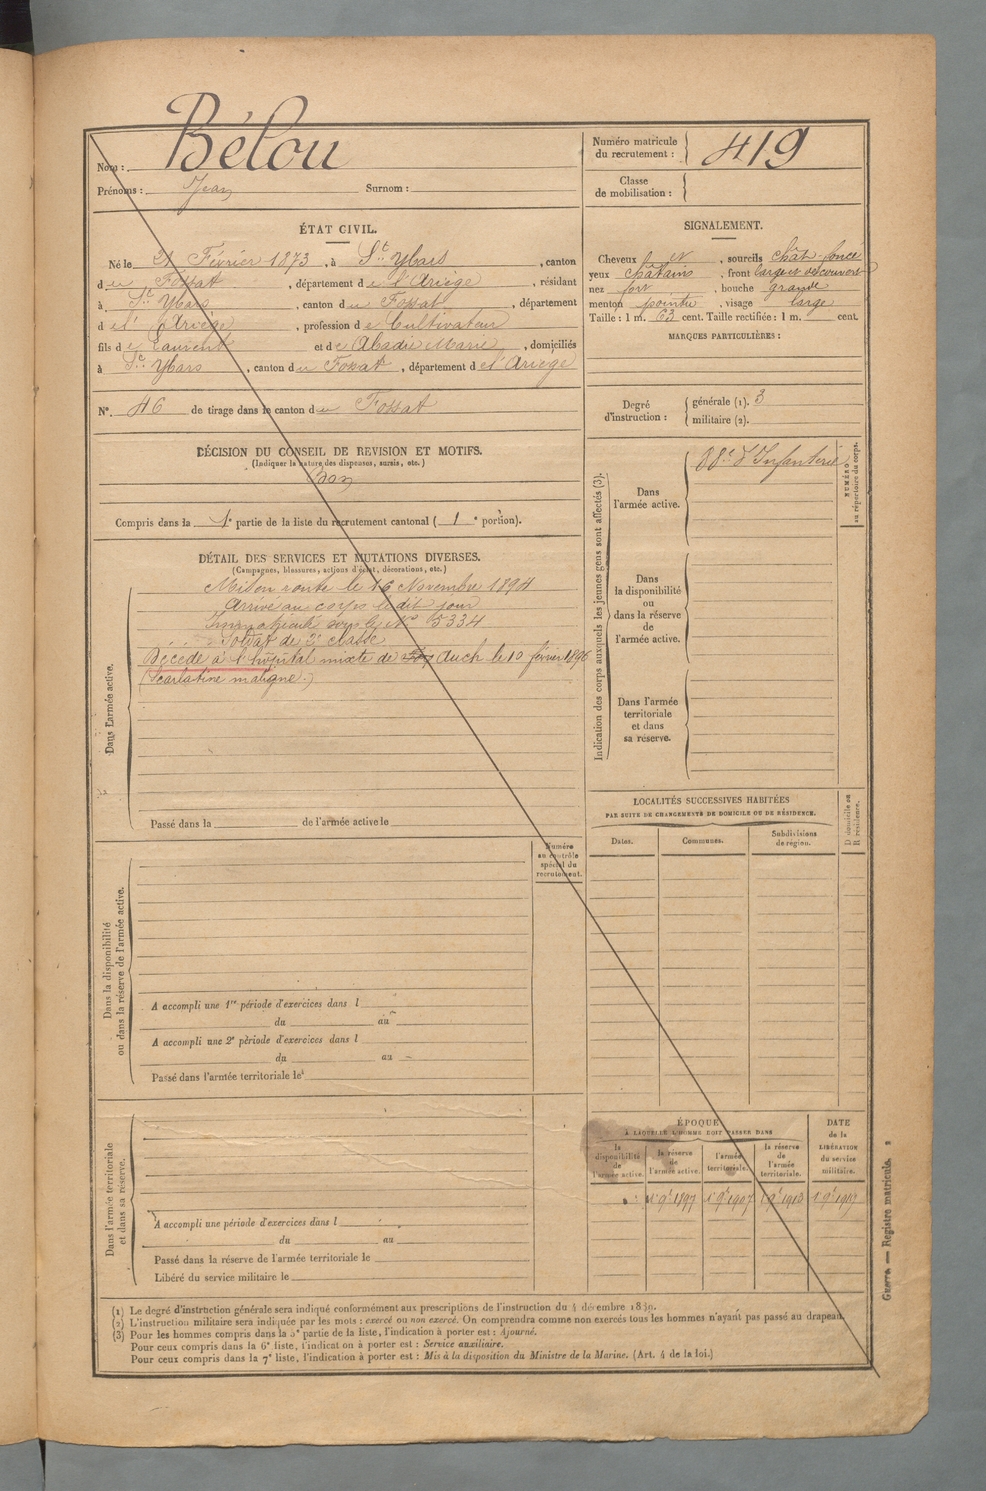 Nom : Bélou
Prénoms : Jean Surnom :
Numéro matricule du recrutement : 419
Classe de mobilisation :
ÉTAT CIVIL.
Né le 21 Février 1873, à St Ybars, canton
du Fossat, département de l'Ariège, résidant
à St Ybars, canton du Fossat, département
de l'Ariège, profession de Cultivateur
fils de Laurent et de Abadie Marie, domiciliés
à St Ybars, canton du Fossat, département de l'Ariège
N°. 46 de tirage dans le canton du Fossat
SIGNALEMENT.
Cheveux et, sourcils chât-foncé
yeux châtains, front large et découvert
nez fort, bouche grande
menton pointu, visage large
Taille : 1 m. 63 cent. Taille rectifiée : 1 m. cent.
MARQUES PARTICULIÈRES :
Degré d'instruction : générale (1). 3
militaire (2).
DÉCISION DU CONSEIL DE REVISION ET MOTIFS.
(Indiquer la nature des dispenses, sursis, etc.)
Bon
Compris dans la 1e partie de la liste du recrutement cantonal (1e portion).
DÉTAIL DES SERVICES ET MUTATIONS DIVERSES.
(Campagnes, blessures, actions d'éclat, décorations, etc.)
Dans l'armée active.
Mis en route le 16 Novembre 1894
Arrivé au corps le dit jour
Immatriculé sous le N° 5334
Soldat de 2e classe
Décédé à l'hôpital mixte de Auch le 10 février 1896
(Scarlatine maligne.)
Passé dans la de l'armée active le
Numéro au contrôle spécial du recrutement.
Dans la disponibilité ou dans la réserve de l'armée active.
A accompli une 1re période d'exercices dans l
du au
A accompli une 2e période d'exercices dans l
du au
Passé dans l'armée territoriale le
Dans l'armée territoriale et dans sa réserve.
A accompli une période d'exercices dans l
du au
Passé dans la réserve de l'armée territoriale le
Libéré du service militaire le
Indication des corps auxquels les jeunes gens sont affectés (3).
Dans l'armée active.
88e d'Infanterie
NUMÉRO au répertoire du corps.
Dans la disponibilité ou dans la réserve de l'armée active.
Dans l'armée territoriale et dans sa réserve.
LOCALITÉS SUCCESSIVES HABITÉES
PAR SUITE DE CHANGEMENTS DE DOMICILE OU DE RÉSIDENCE.
Dates. Communes. Subdivisions de région.
D domicile ou R résidence.
ÉPOQUE
A LAQUELLE L'HOMME DOIT PASSER DANS
la disponibilité de l'armée active.
la réserve de l'armée active.
l'armée territoriale.
la réserve de l'armée territoriale.
DATE de la LIBÉRATION du service militaire.
1 9e 1897 1 9e 1907 1 9e 1913 1 9e 1919
(1) Le degré d'instruction générale sera indiqué conformément aux prescriptions de l'instruction du 4 décembre 1889.
(2) L'instruction militaire sera indiquée par les mots : exercé ou non exercé. On comprendra comme non exercés tous les hommes n'ayant pas passé au drapeau.
(3) Pour les hommes compris dans la 5e partie de la liste, l'indication à porter est : Ajourné.
Pour ceux compris dans la 6e liste, l'indication à porter est : Service auxiliaire.
Pour ceux compris dans la 7e liste, l'indication à porter est : Mis à la disposition du Ministre de la Marine. (Art. 4 de la loi.)
Guerre. — Registre matricule. 2